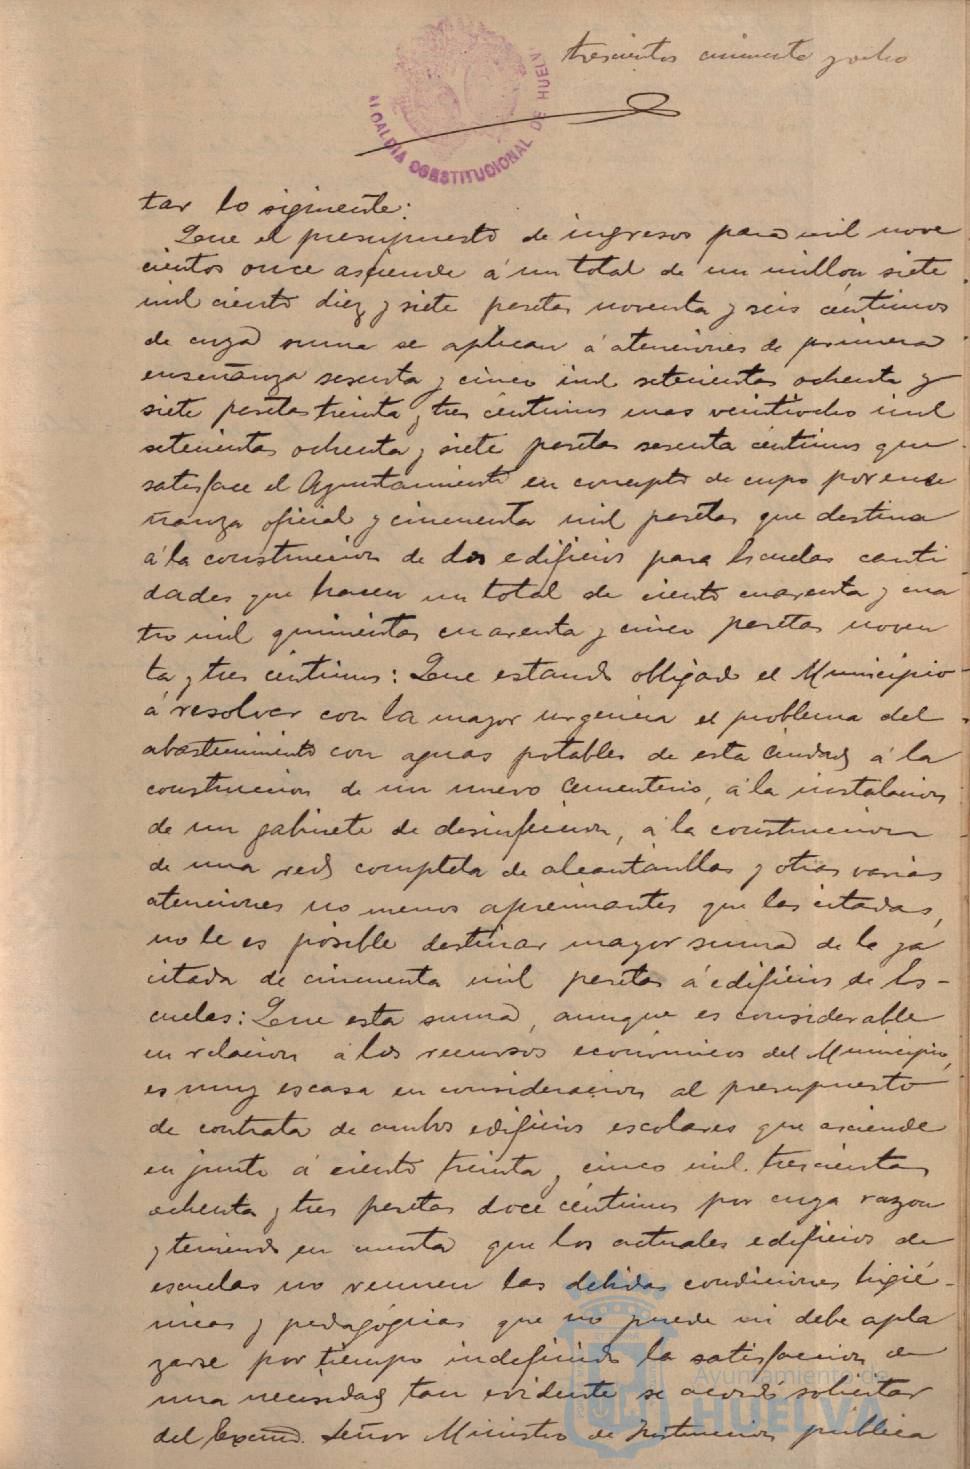 trescientos cincuenta y ocho
ALCALDIA CONSTITUCIONAL DE HUELVA
tar lo siguiente:
Que el presupuesto de ingresos para mil nove
cientos once asciende á un total de un millon siete
mil ciento diez y siete pesetas noventa y seis céntimos
de cuya suma se aplican á atenciones de primera
enseñanza sesenta y cinco mil setecientas ochenta y
siete pesetas treinta y tres céntimos mas veintiocho mil
setecientas ochenta y siete pesetas sesenta céntimos que
satisface el Ayuntamiento en concepto de cupo por ense
ñanza oficial y cincuenta mil pesetas que destina
á la construccion de dos edificios para Escuelas canti
dades que hacen un total de ciento cuarenta y cua
tro mil quinientas cuarenta y cinco pesetas noven
ta y tres céntimos: Que estando obligado el Municipio
á resolver con la mayor urgencia el problema del
abastecimiento con aguas potables de esta Ciudad á la
construccion de un nuevo Cementerio, á la instalacion
de un gabinete de desinfeccion, á la construccion
de una red completa de alcantarillas y otras varias
atenciones no menos apremiantes que las citadas,
no le es posible destinar mayor suma de la ya
citada de cincuenta mil pesetas á edificios de Es-
cuelas: Que esta suma, aunque es considerable
en relacion á los recursos económicos del Municipio,
es muy escasa en consideracion al presupuesto
de contrata de ambos edificios escolares que asciende
en junto á ciento treinta y cinco mil trescientas
ochenta y tres pesetas doce céntimos por cuya razon
y teniendo en cuenta que los actuales edificios de
escuelas no reunen las debidas condiciones higié-
nicas y pedagógicas que no puede ni debe apla
zarse por tiempo indefinido la satisfaccion de
una necesidad tan evidente se acordó solicitar
del Excmo. Señor Ministro de Instruccion publica
Ayuntamiento de
HUELVA